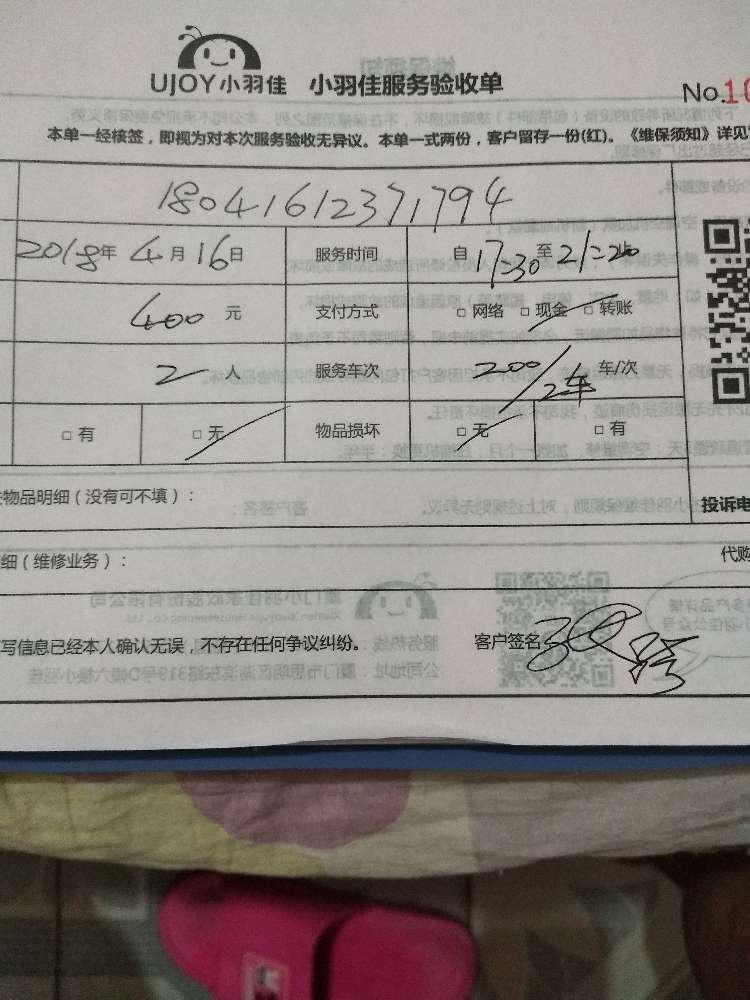 UJOY小羽佳 小羽佳服务验收单
No.10
本单一经核签，即视为对本次服务验收无异议。本单一式两份，客户留存一份(红)。《维保须知》详见
18041612371794
2018年 4月16日 服务时间 自17:30至21:20
400 元 支付方式 □ 网络 □ 现金 □ 转账
2 人 服务车次 200/2车 车/次
□ 有 □ 无 物品损坏 □ 无 □ 有
物品明细（没有可不填）：
投诉电
细（维修业务）：
代购
写信息已经本人确认无误，不存在任何争议纠纷。 客户签名